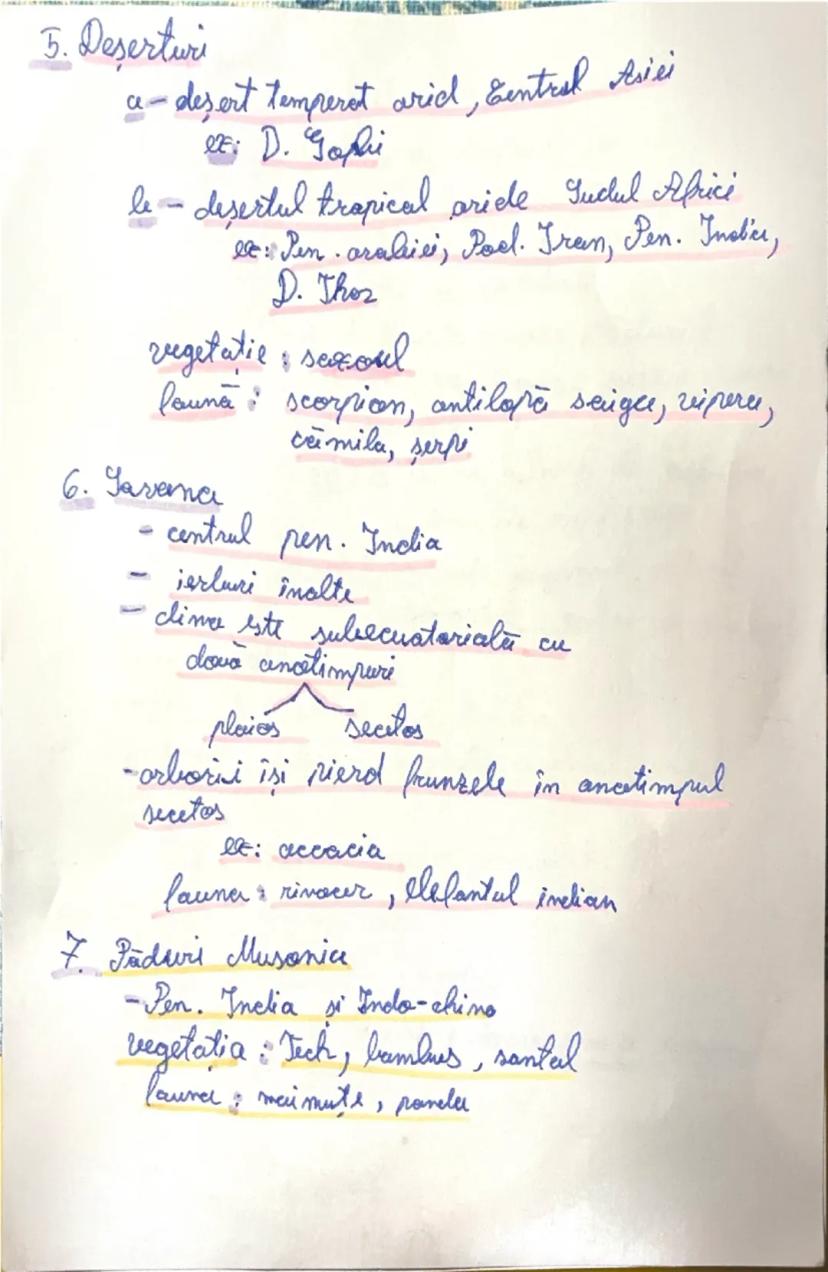 5. Deșerturi
a - deșert temperat arid, Centrul Asiei
ex: D. Gophi
b - deșertul tropical aride Sudul Africi
ex: Pen. arabiei, Pod. Iran, Pen. India,
D. Thor
vegetație : saxaul
faună : scorpion, antilopă saiga, vipera,
cămila, șerpi
6. Savana
- centrul pen. India
- ierburi înalte
- clima este subecuatorială cu
două anotimpuri
ploios secetos
- arborii își pierd frunzele în anotimpul
secetos
ex: accacia
fauna : rinocer, elefantul indian
7. Păduri Musonice
- Pen. India și Indo-china
vegetația : Teck, bambus, santal
fauna : maimuțe, panda